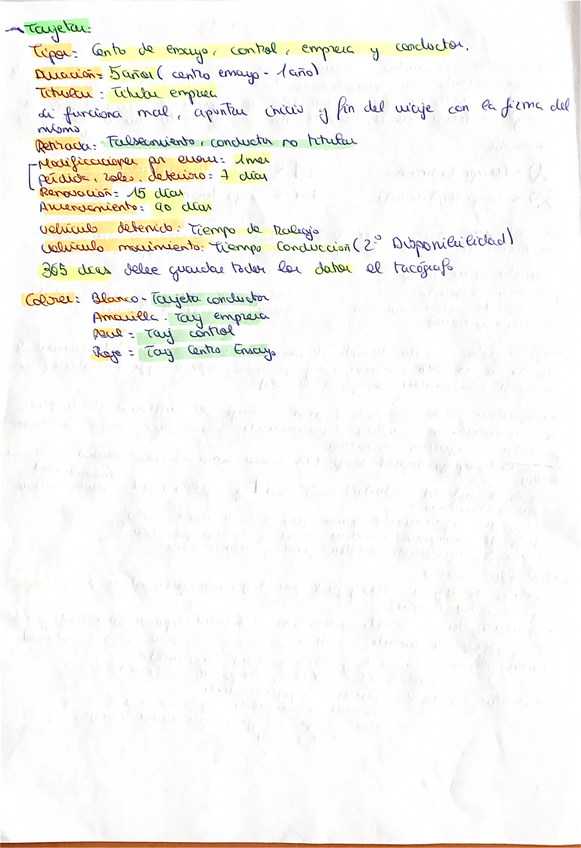 → Tarjetas:
Tipos: Centro de ensayo, control, empresa y conductor.
Duración: 5 años (centro ensayo - 1 año)
Titular: Titular empresa
Si funciona mal, apuntar inicio y fin del viaje con la firma del
mismo
Retirada: Falseamiento, conductor no titular
Modificaciones por error: 1 mes
Pérdida, robo, deterioro: 7 días
Renovación: 15 días
Arrendamiento: 90 días
Vehículo detenido: Tiempo de trabajo
Vehículo movimiento: Tiempo Conducción (2º Disponibilidad)
365 días debe guardar todos los datos el tacógrafo
Colores: Blanco - Tarjeta conductor
Amarilla - Tarj empresa
Azul = Tarj control
Rojo = Tarj Centro Ensayo